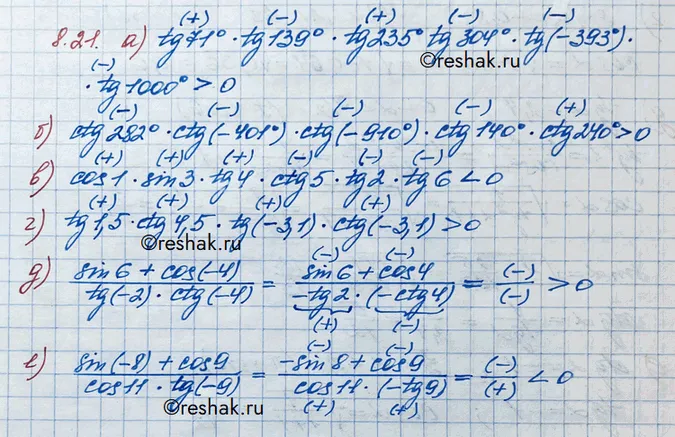 (+) (-) (+) (-) (-)
8.21. а) tg71° · tg139° · tg235° tg304° · tg(-393°) ·
©reshak.ru
(-)
· tg1000° > 0
(-) (-) (-) (-) (+)
б) ctg282° · ctg(-401°) · ctg(-910°) · ctg140° · ctg240° > 0
(+) (+) (+) (-) (-) (-)
в) cos1 · sin3 · tg4 · ctg5 · tg2 · tg6 < 0
(+) (+) (+) (+)
г) tg1,5 · ctg4,5 · tg(-3,1) · ctg(-3,1) > 0
©reshak.ru
(-) (-)
д) (sin6 + cos(-4))/(tg(-2) · ctg(-4)) = (sin6 + cos4)/(-tg2 · (-ctg4)) = (-)/(-) > 0
(+) (-)
(-) (-)
е) (sin(-8) + cos9)/(cos11 · tg(-9)) = (-sin8 + cos9)/(cos11 · (-tg9)) = (-)/(+) < 0
(+) (+)
©reshak.ru